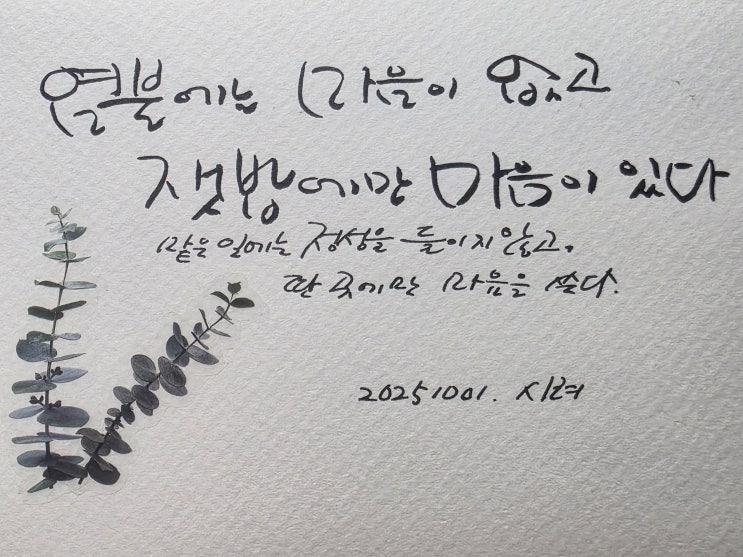 염불에는 마음이 없고
잿밥에만 마음이 있다
맡은 일에는 정성을 들이지 않고,
딴 곳에만 마음을 쓴다.
20251001.